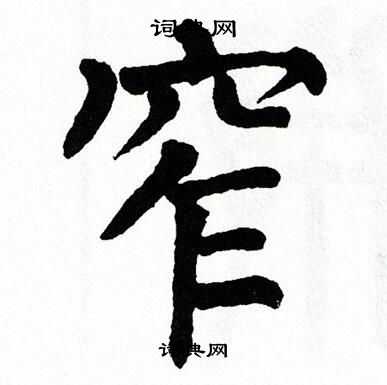 词典网
窄
词典网